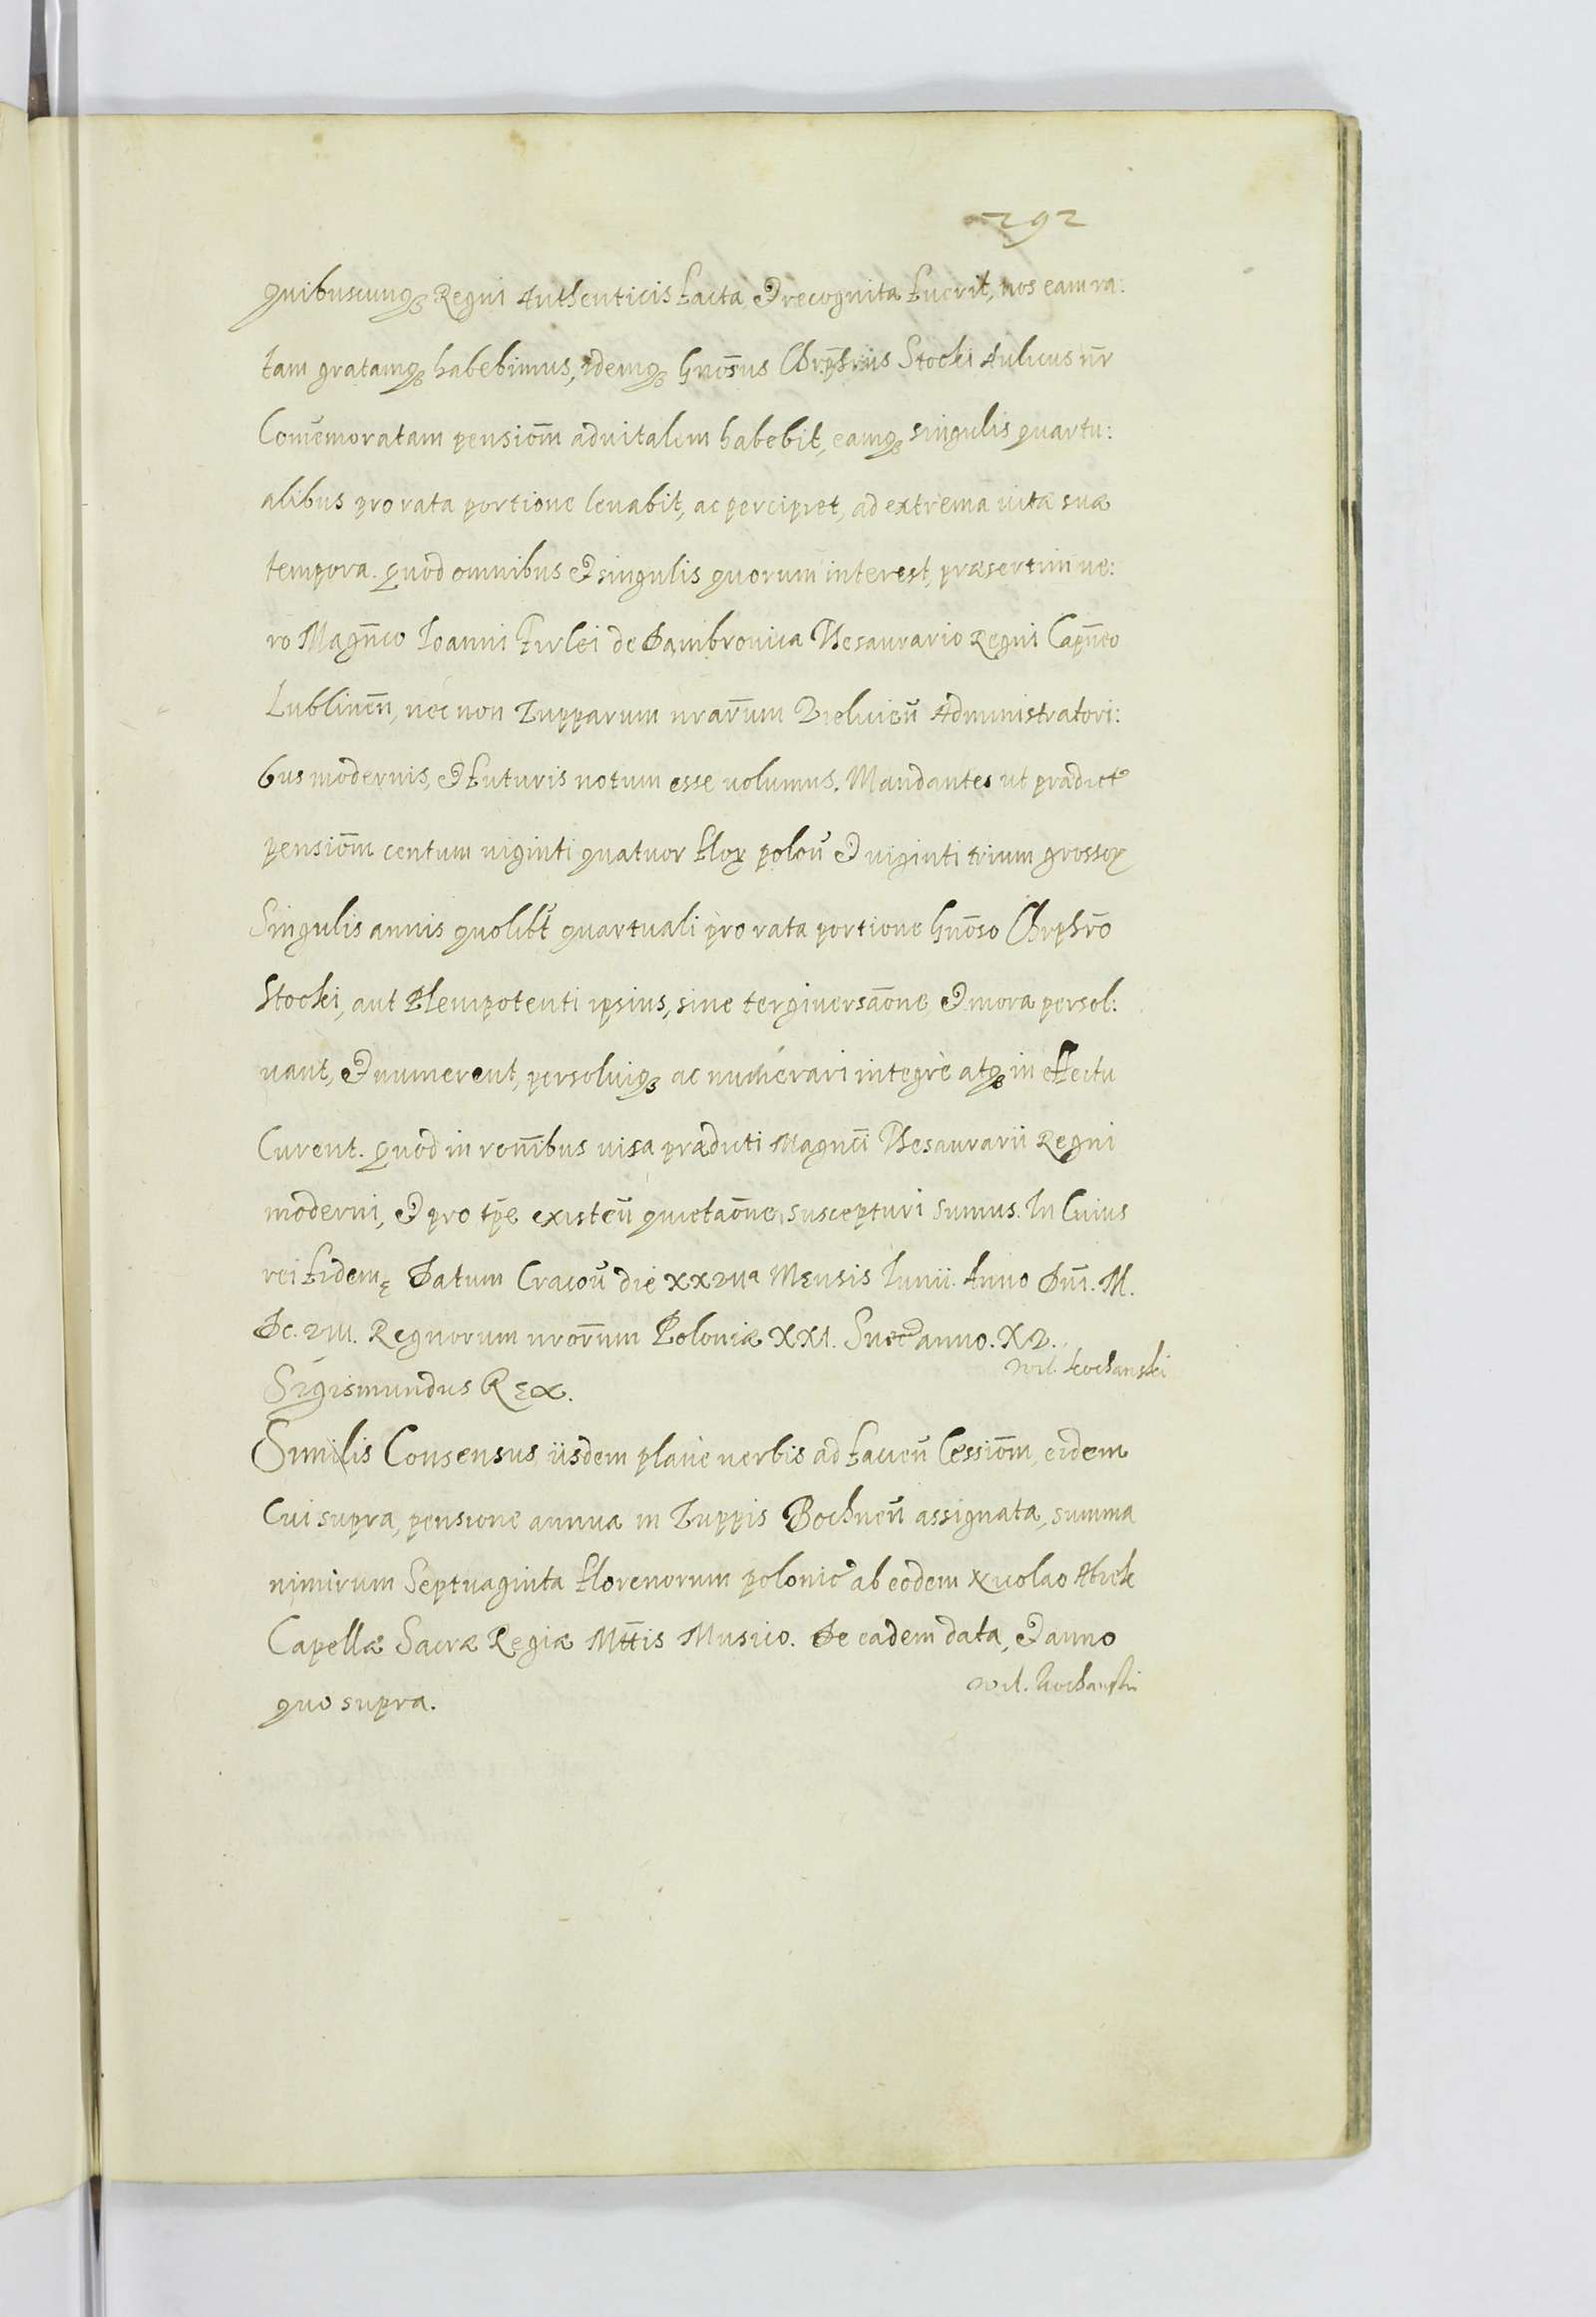 292
quibuscunqȝ Regni Authenticis facta, et recognita fuerit, nos eam ra:
tam gratamqȝ habebimus, idemqȝ Gnōsus Chrpħrus Stocki Aulicus nr̄
Com̄emoratam pensiōm aduitalem habebit, eamqȝ singulis quartu:
alibus pro rata portione leuabit, ac percipiet, ad extrema uitæ suæ
tempora. Quod omnibus et singulis quorum interest, præsertim ue:
ro Magn̄co Ioanni Firlei de Dambrouica Thesaurario Regni Capn̄eo
Lublinen̄, nec non Zupparum nrārum Vieliciēn Administratori:
bus modernis, et futuris notum esse uolumus. Mandantes ut prædict
pensiōm centum uiginti quatuor flor polon̄ et uiginti trium grossor
Singulis annis quolibt quartuali pro rata portione Gnōso Chrpħro
Stocki, aut Plenipotenti ipsius, sine tergiuersaōne et mora persol:
uant, et numerent, persoluiqȝ ac numerari integrè atqȝ in effectu
Curent. Quod in ron̄ibus uisa prædicti Magn̄ci Thesaurarii Regni
moderni, et pro tp̄e existēn quietaōne, suscepturi sumus. In Cuius
rei fidem Datum Cracou die XXVIIa Mensis Iunii. Anno Dn̄i. M.
DC. VIII. Regnorum nrōrum Poloniæ XXI. Suec anno. XV.
Sigismundus Rex.
Similis Consensus iisdem plane uerbis ad facien̄ Cessiōm, eidem
Cui supra, pensione annua in Zuppis Bochnen̄ assignata, summa
nimirum Septuaginta florenorum polonic ab eodem Nicolao
Capellæ Sacræ Regiæ Mttis Musico. De eadem data, et anno
quo supra.